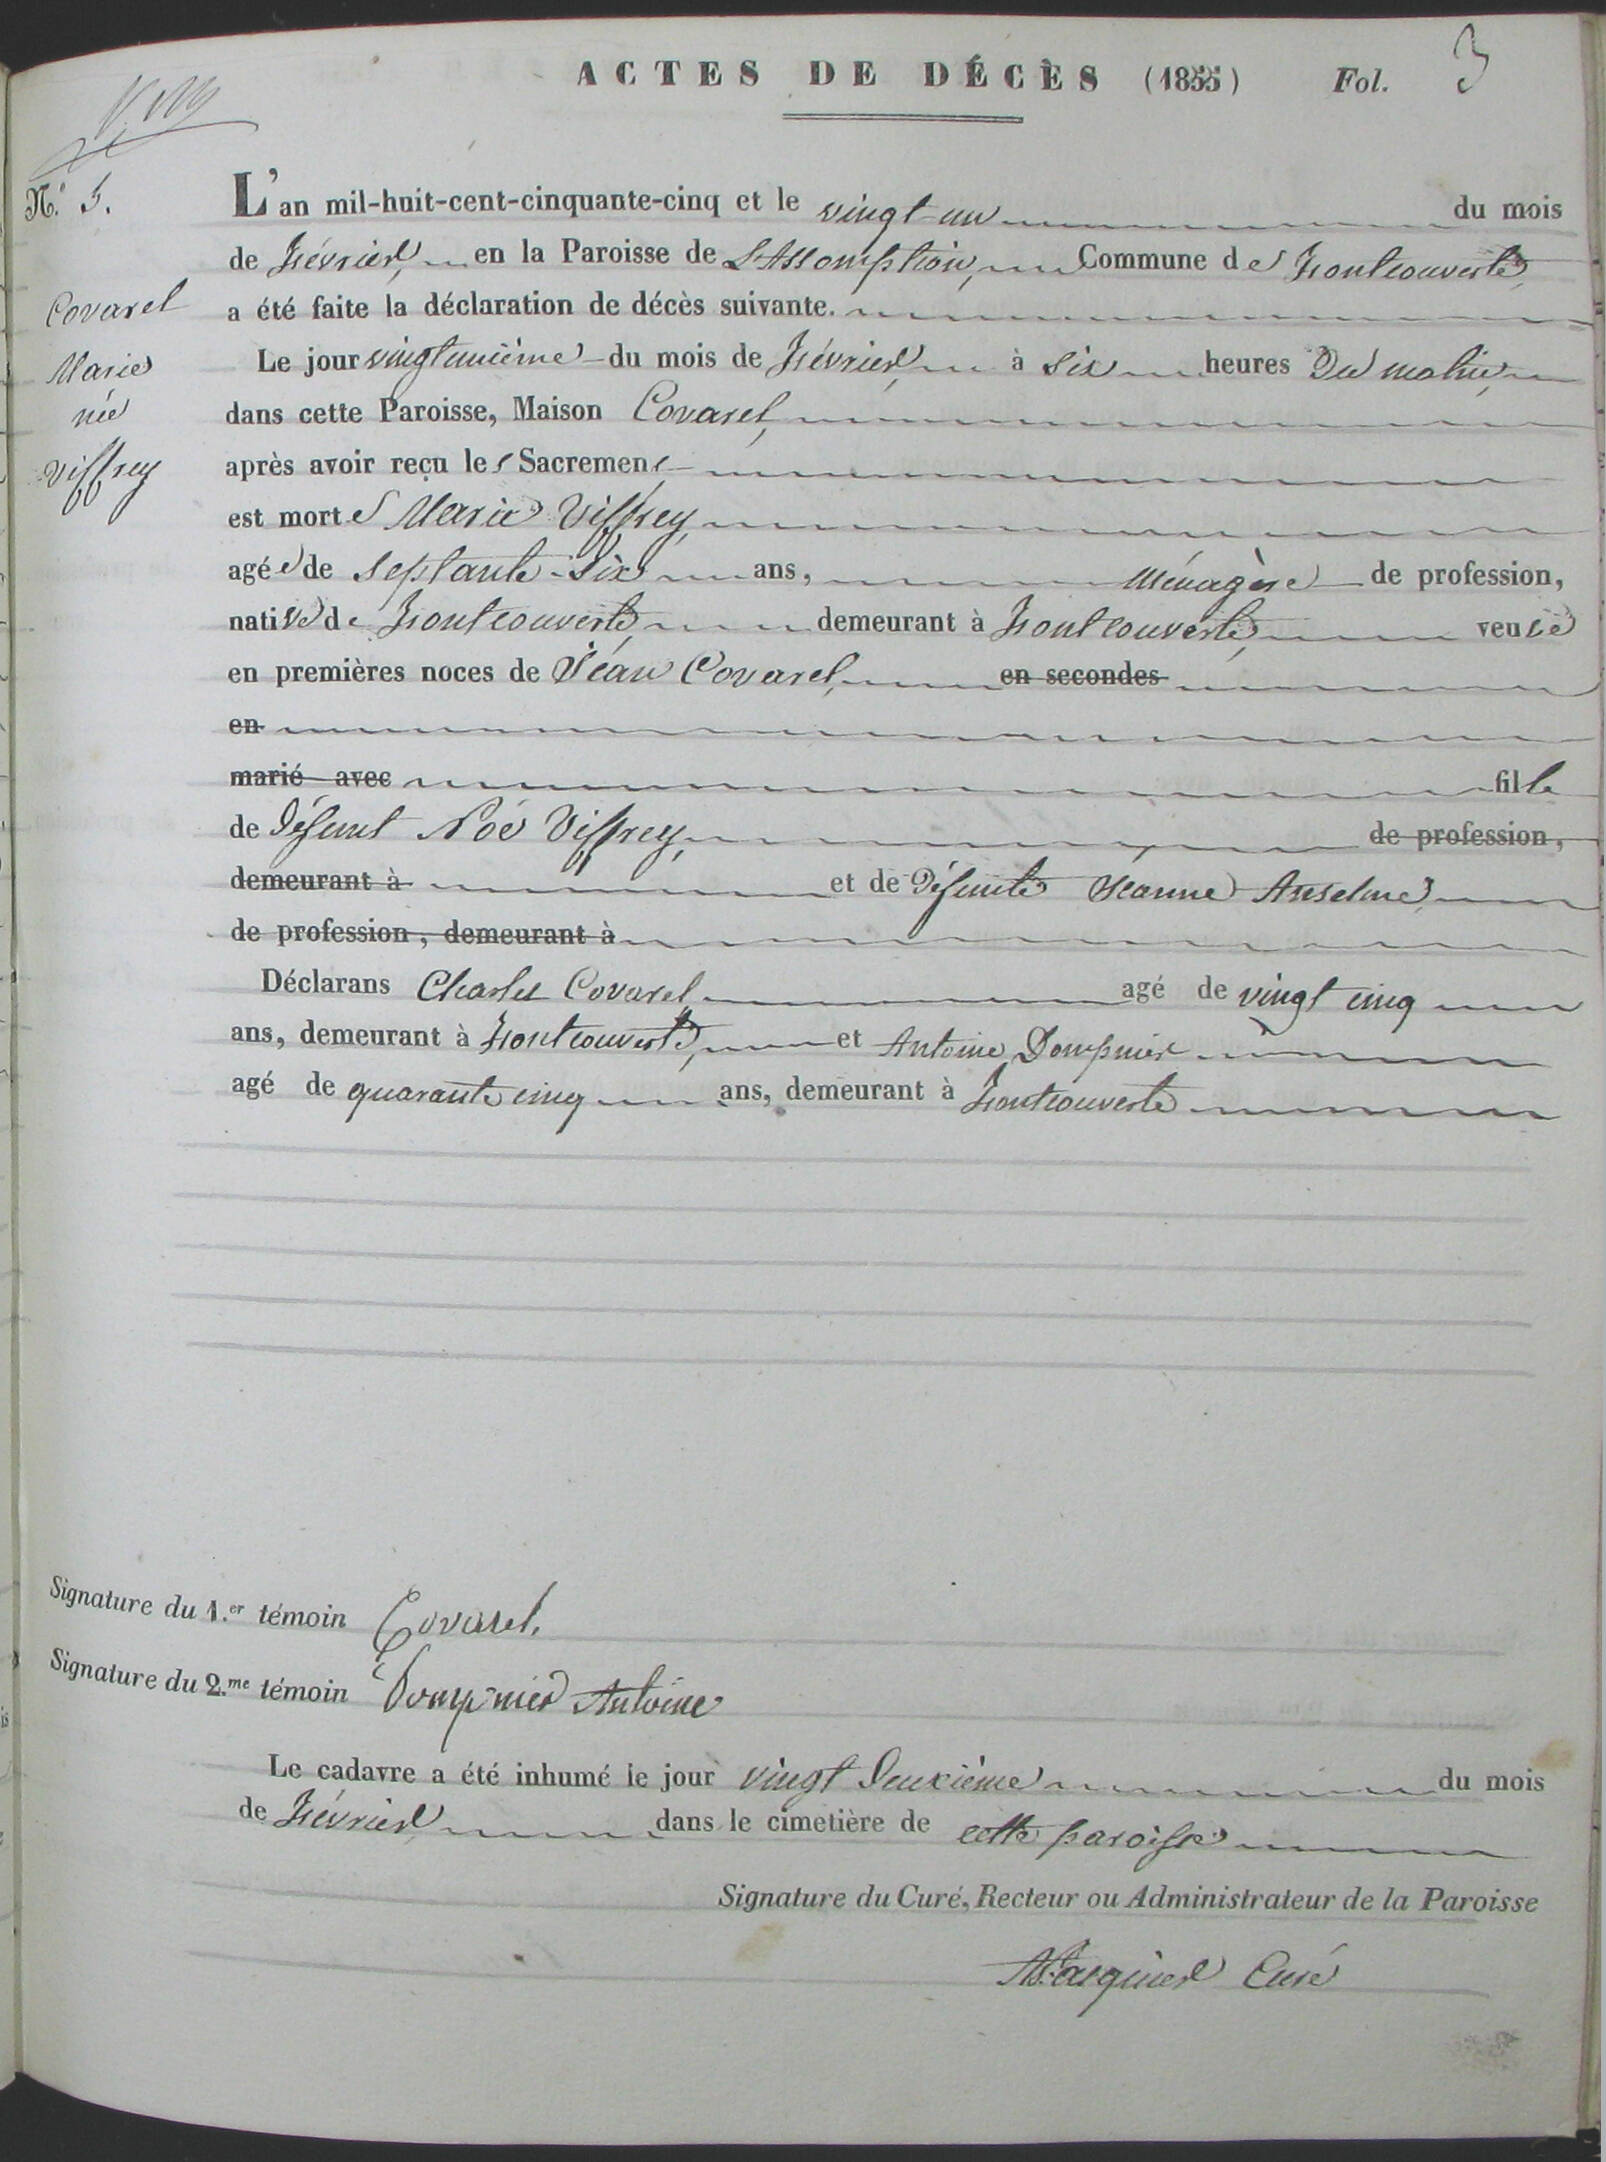 ACTES DE DÉCÈS (1855) Fol. 3
N.° 5.
L'an mil-huit-cent-cinquante-cinq et le vingt-un du mois
de février, en la Paroisse de L'Assomption, Commune de Fontcouverte,
a été faite la déclaration de décès suivante.
Covarel
Marie
née
Viffrey
Le jour vingtunième du mois de février, à six heures du matin,
dans cette Paroisse, Maison Covarel,
après avoir reçu les Sacremens
est morte Marie Viffrey,
agée de septante-six ans, ménagère de profession,
native de Fontcouverte, demeurant à Fontcouverte, veuve
en premières noces de Jean Covarel, en secondes
en
marié avec fille
de défunt Noé Viffrey, de profession,
demeurant à et de défunte Jeanne Anselme,
de profession, demeurant à
Déclarans Charles Covarel agé de vingt cinq
ans, demeurant à Fontcouverte, et Antoine Dompnier
agé de quarante cinq ans, demeurant à Fontcouverte
Signature du 1.er témoin Covarel.
Signature du 2.me témoin Dompnier Antoine
Le cadavre a été inhumé le jour vingt deuxième du mois
de février dans le cimetière de cette paroisse
Signature du Curé, Recteur ou Administrateur de la Paroisse
Curé